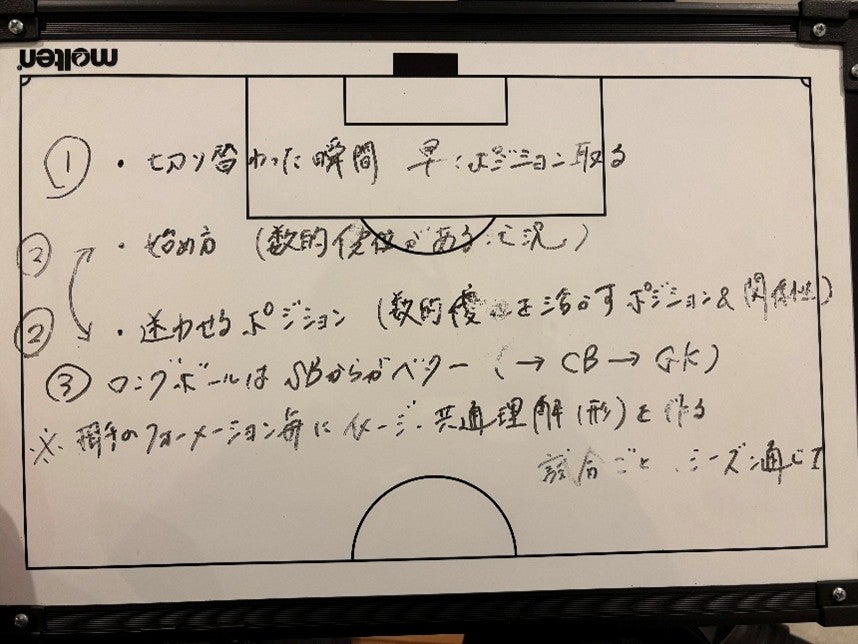 molten
① ・切り替わった瞬間 早くポジション取る
② ・始め方 (数的優位がある状況)
② ・迷わせるポジション (数的優位を活かすポジション&関係性)
③ ロングボールはSBからがベター (→CB→GK)
※ 相手のフォーメーション毎にイメージ・共通理解(形)を作る
試合ごと シーズン通じて